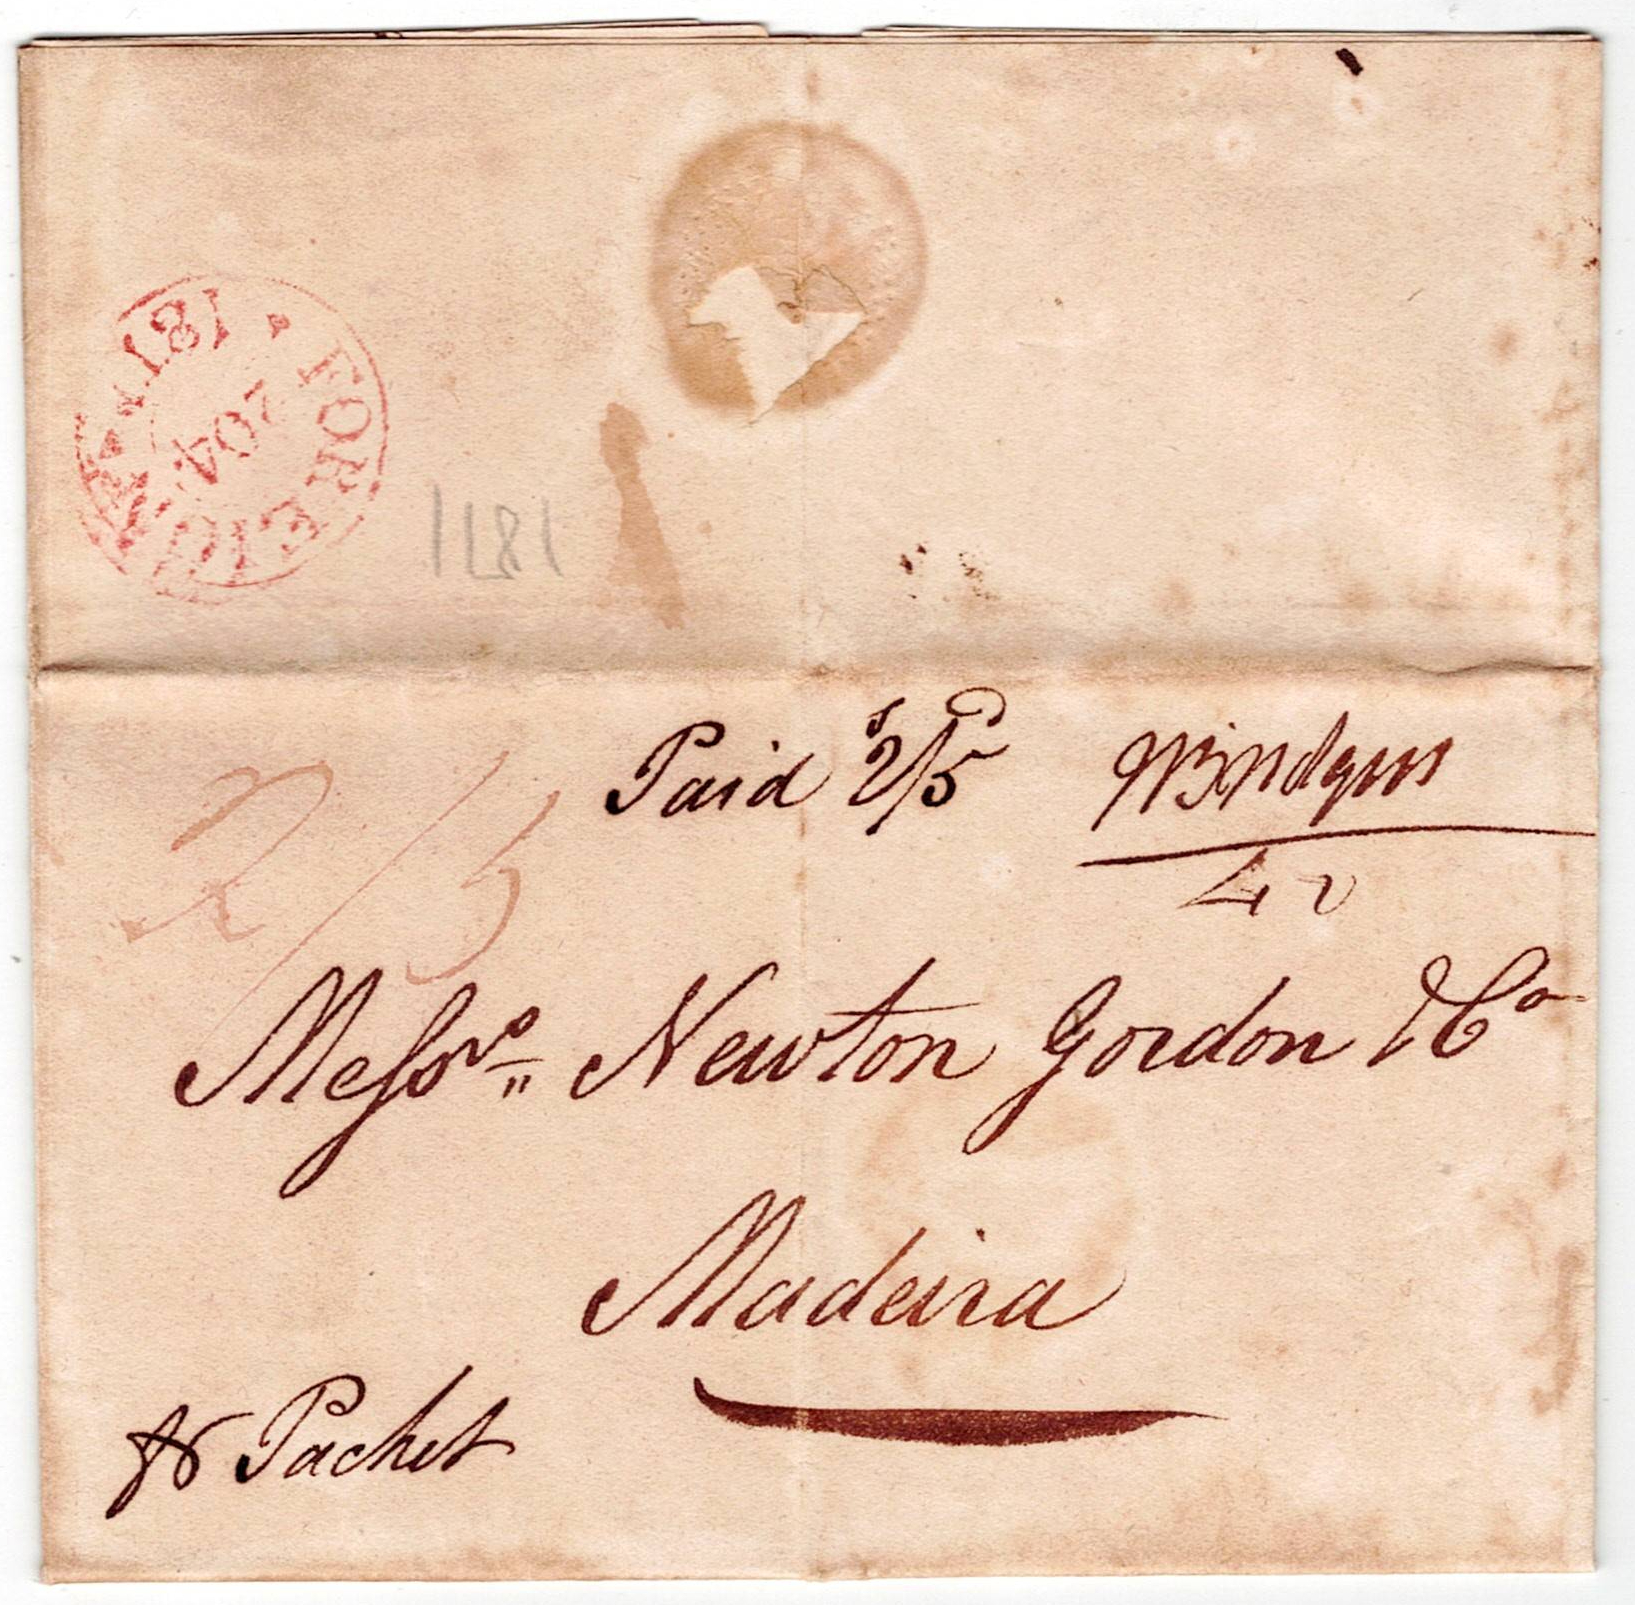 FOREIGN
1811
1811
Paid 2/5
2/5
Messrs. Newton Gordon & Co
Madeira
Pr Packet